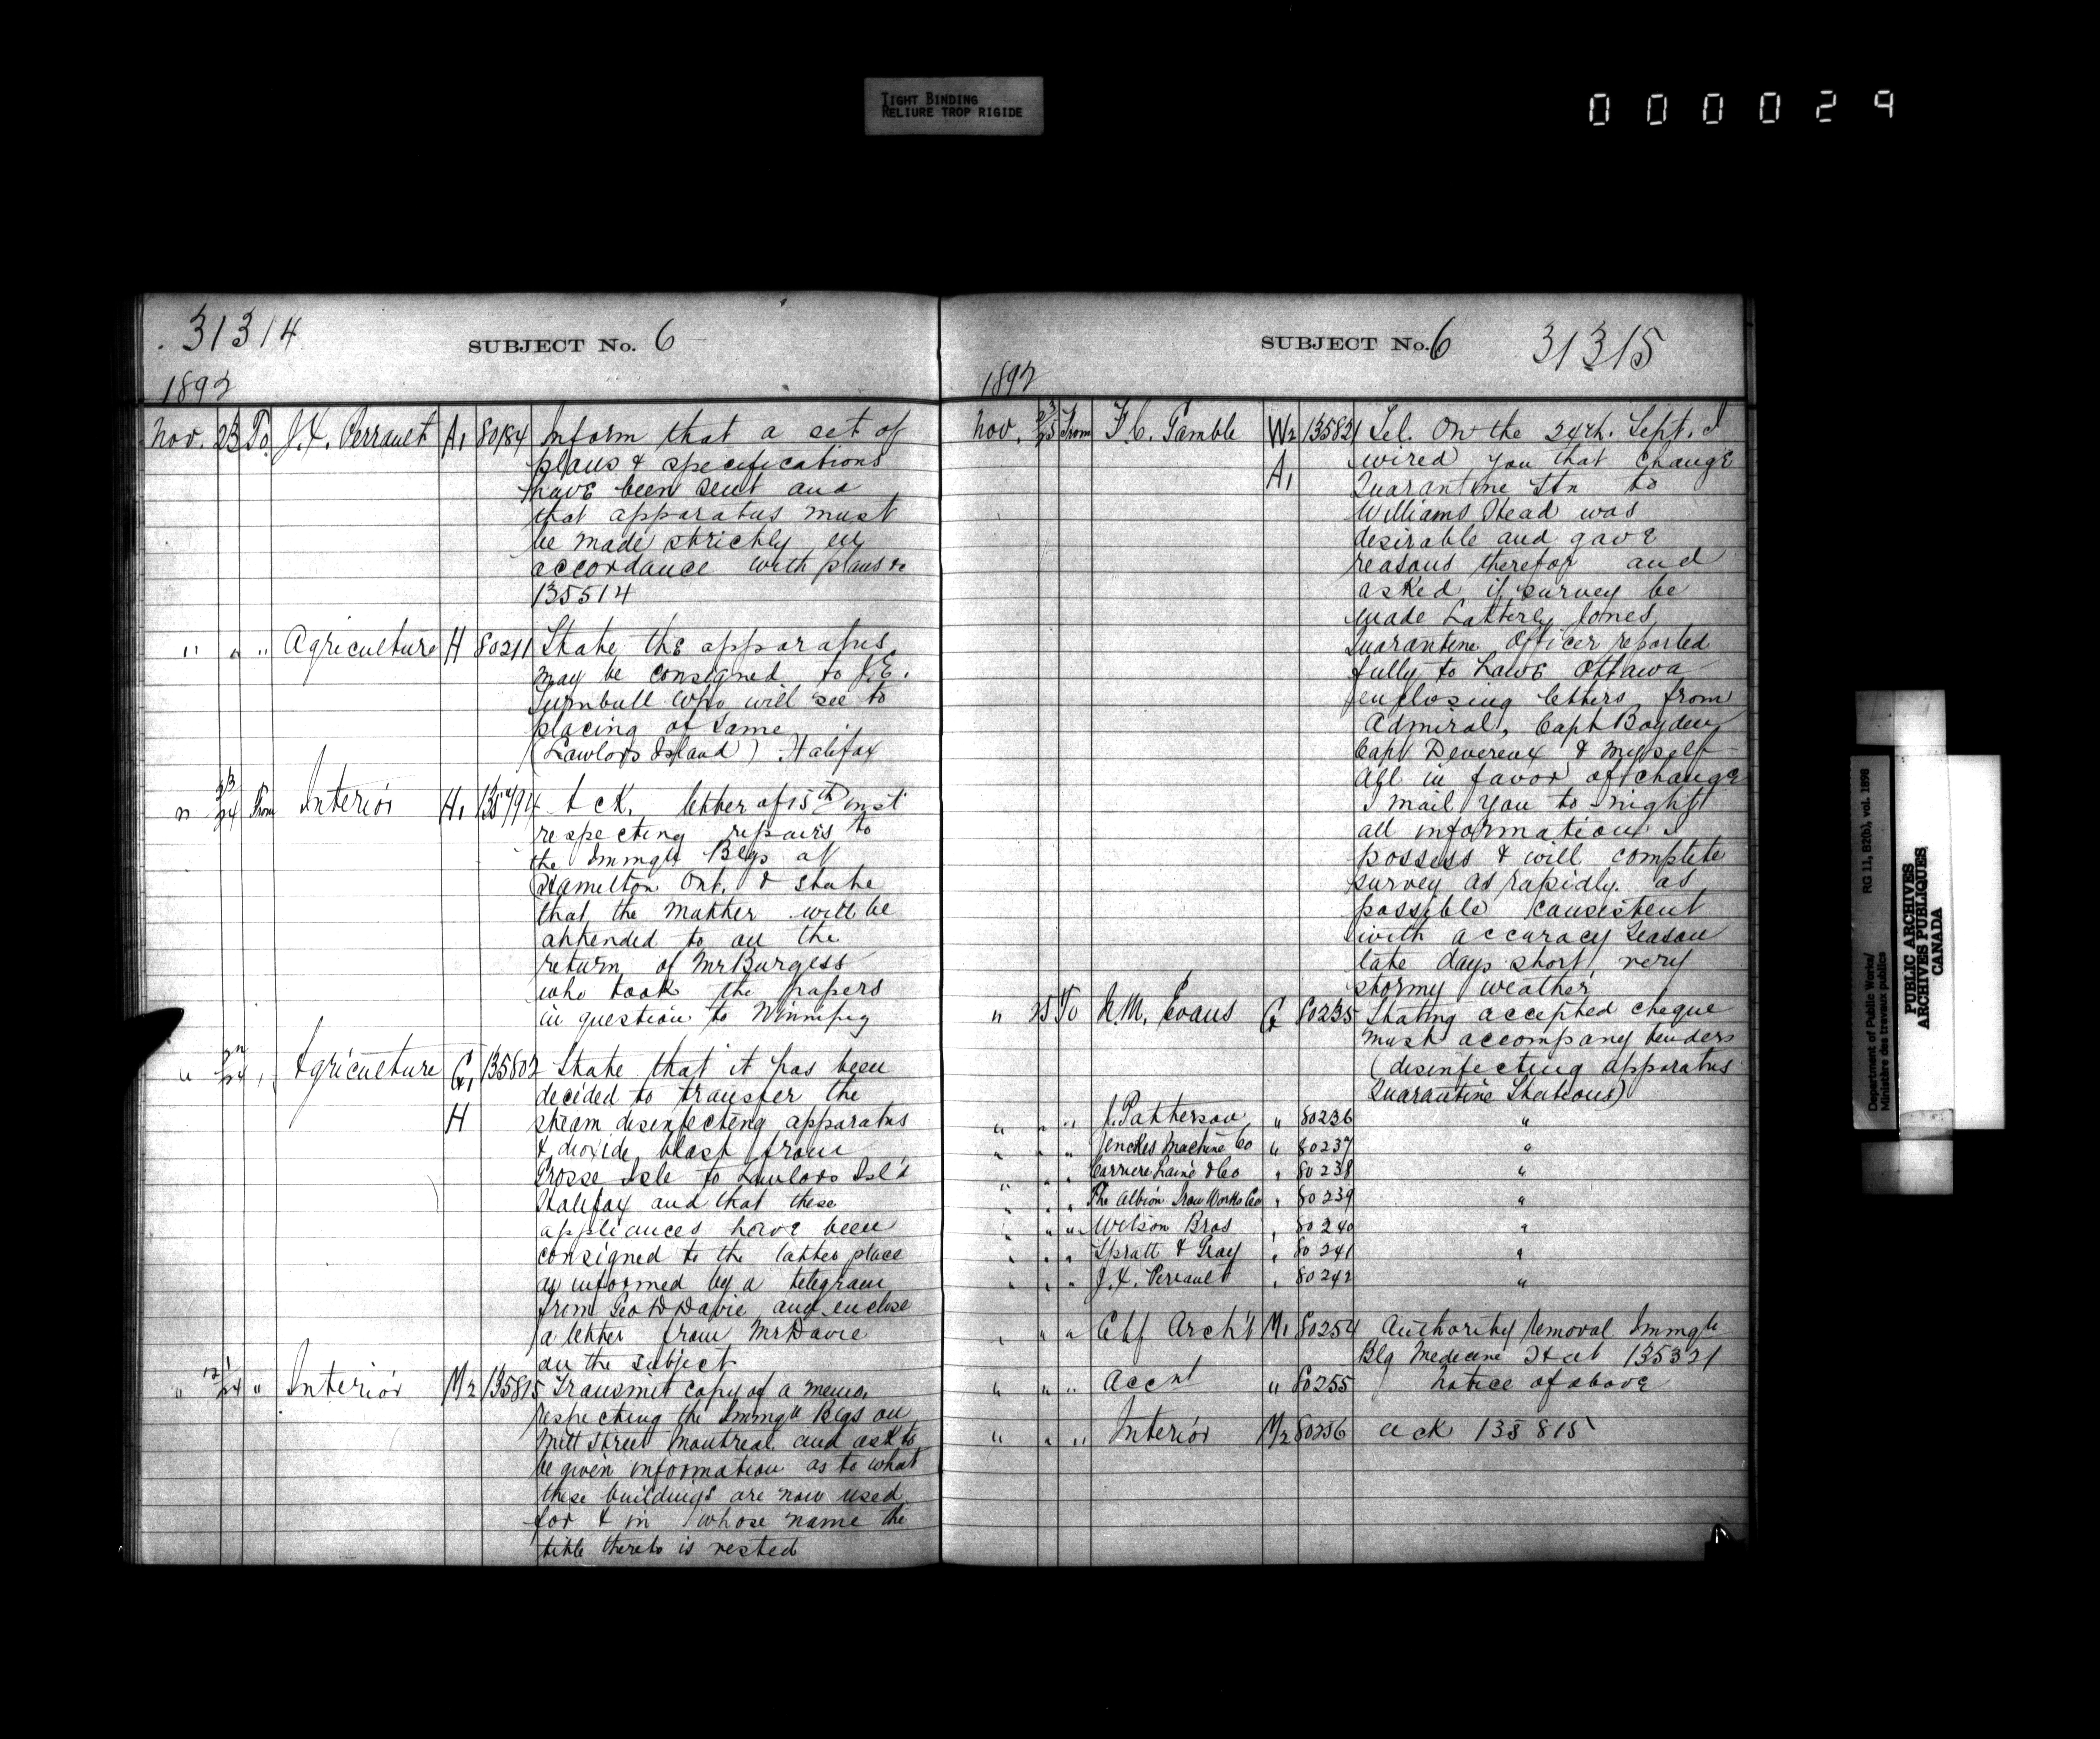 TIGHT BINDING
RELIURE TROP RIGIDE
000029
31314
SUBJECT No. 6
1892
Nov. 23 To J.X. Perrault A1 80184 Inform that a set of
plans & specifications
have been sent and
that apparatus must
be made strictly in
accordance with plans &c
135514
" " " Agriculture H 80211 State the apparatus
may be consigned to J.E.
Turnbull who will see to
placing of same
(Lawlors Island) Halifax
" 23/24 From Interior H1 135794 Ack. letter of 15th inst
respecting repairs to
the Immgtn Blgs at
Hamilton Ont. & state
that the matter will be
attended to on the
return of Mr Burgess
who took the papers
in question to Winnipeg
" 22/24 " Agriculture G1 135802 State that it has been
decided to transfer the
H steam disinfecting apparatus
& dioxide blast from
Grosse Isle to Lawlors Isl'd
Halifax and that these
appliances have been
consigned to the latter place
as informed by a telegram
from Geo D Davie and enclose
a letter from Mr Davie
on the subject
" " Interior M2 135815 Transmit copy of a memo.
respecting the Immgtn Blgs on
Mill Street Montreal and ask to
be given information as to what
these buildings are now used
for & in whose name the
title thereto is vested
SUBJECT No. 6 31315
1892
Nov. 23/25 From F.C. Gamble W2 135821 Tel. On the 24th. Sept. I
A1 wired you that change
Quarantine Stn to
Williams Head was
desirable and gave
reasons therefor and
asked if survey be
made Latterly Jones
Quarantine Officer reported
fully to Lowe Ottawa
enclosing letters from
Admiral, Capt
Capt Devereux & myself
all in favor of change
I mail you to-night
all information I
possess & will complete
survey as rapidly as
possible consistent
with accuracy Season
late days short, very
stormy weather
" 25 To N.M. Evans G 80235 Stating accepted cheque
must accompany tenders
(disinfecting apparatus
Quarantine Stations)
" " " J. Patterson " 80236 "
" " " Jenckes Machine Co " 80237 "
" " " Carriere Lainé & Co " 80238 "
" " " The Albion Iron Works Co " 80239 "
" " " Wilson Bros " 80240 "
" " " Spratt & Gray " 80241 "
" " " J.X. Perrault " 80242 "
" " " Chf Arch't M1 80254 Authority removal Immgtn
Blg Medecine Hat 135321
" " " Accnt " 80255 Notice of above
" " " Interior M2 80256 ack 135815
Department of Public Works/ RG 11, B2(b), vol. 1898
Ministère des travaux publics
PUBLIC ARCHIVES
ARCHIVES PUBLIQUES
CANADA